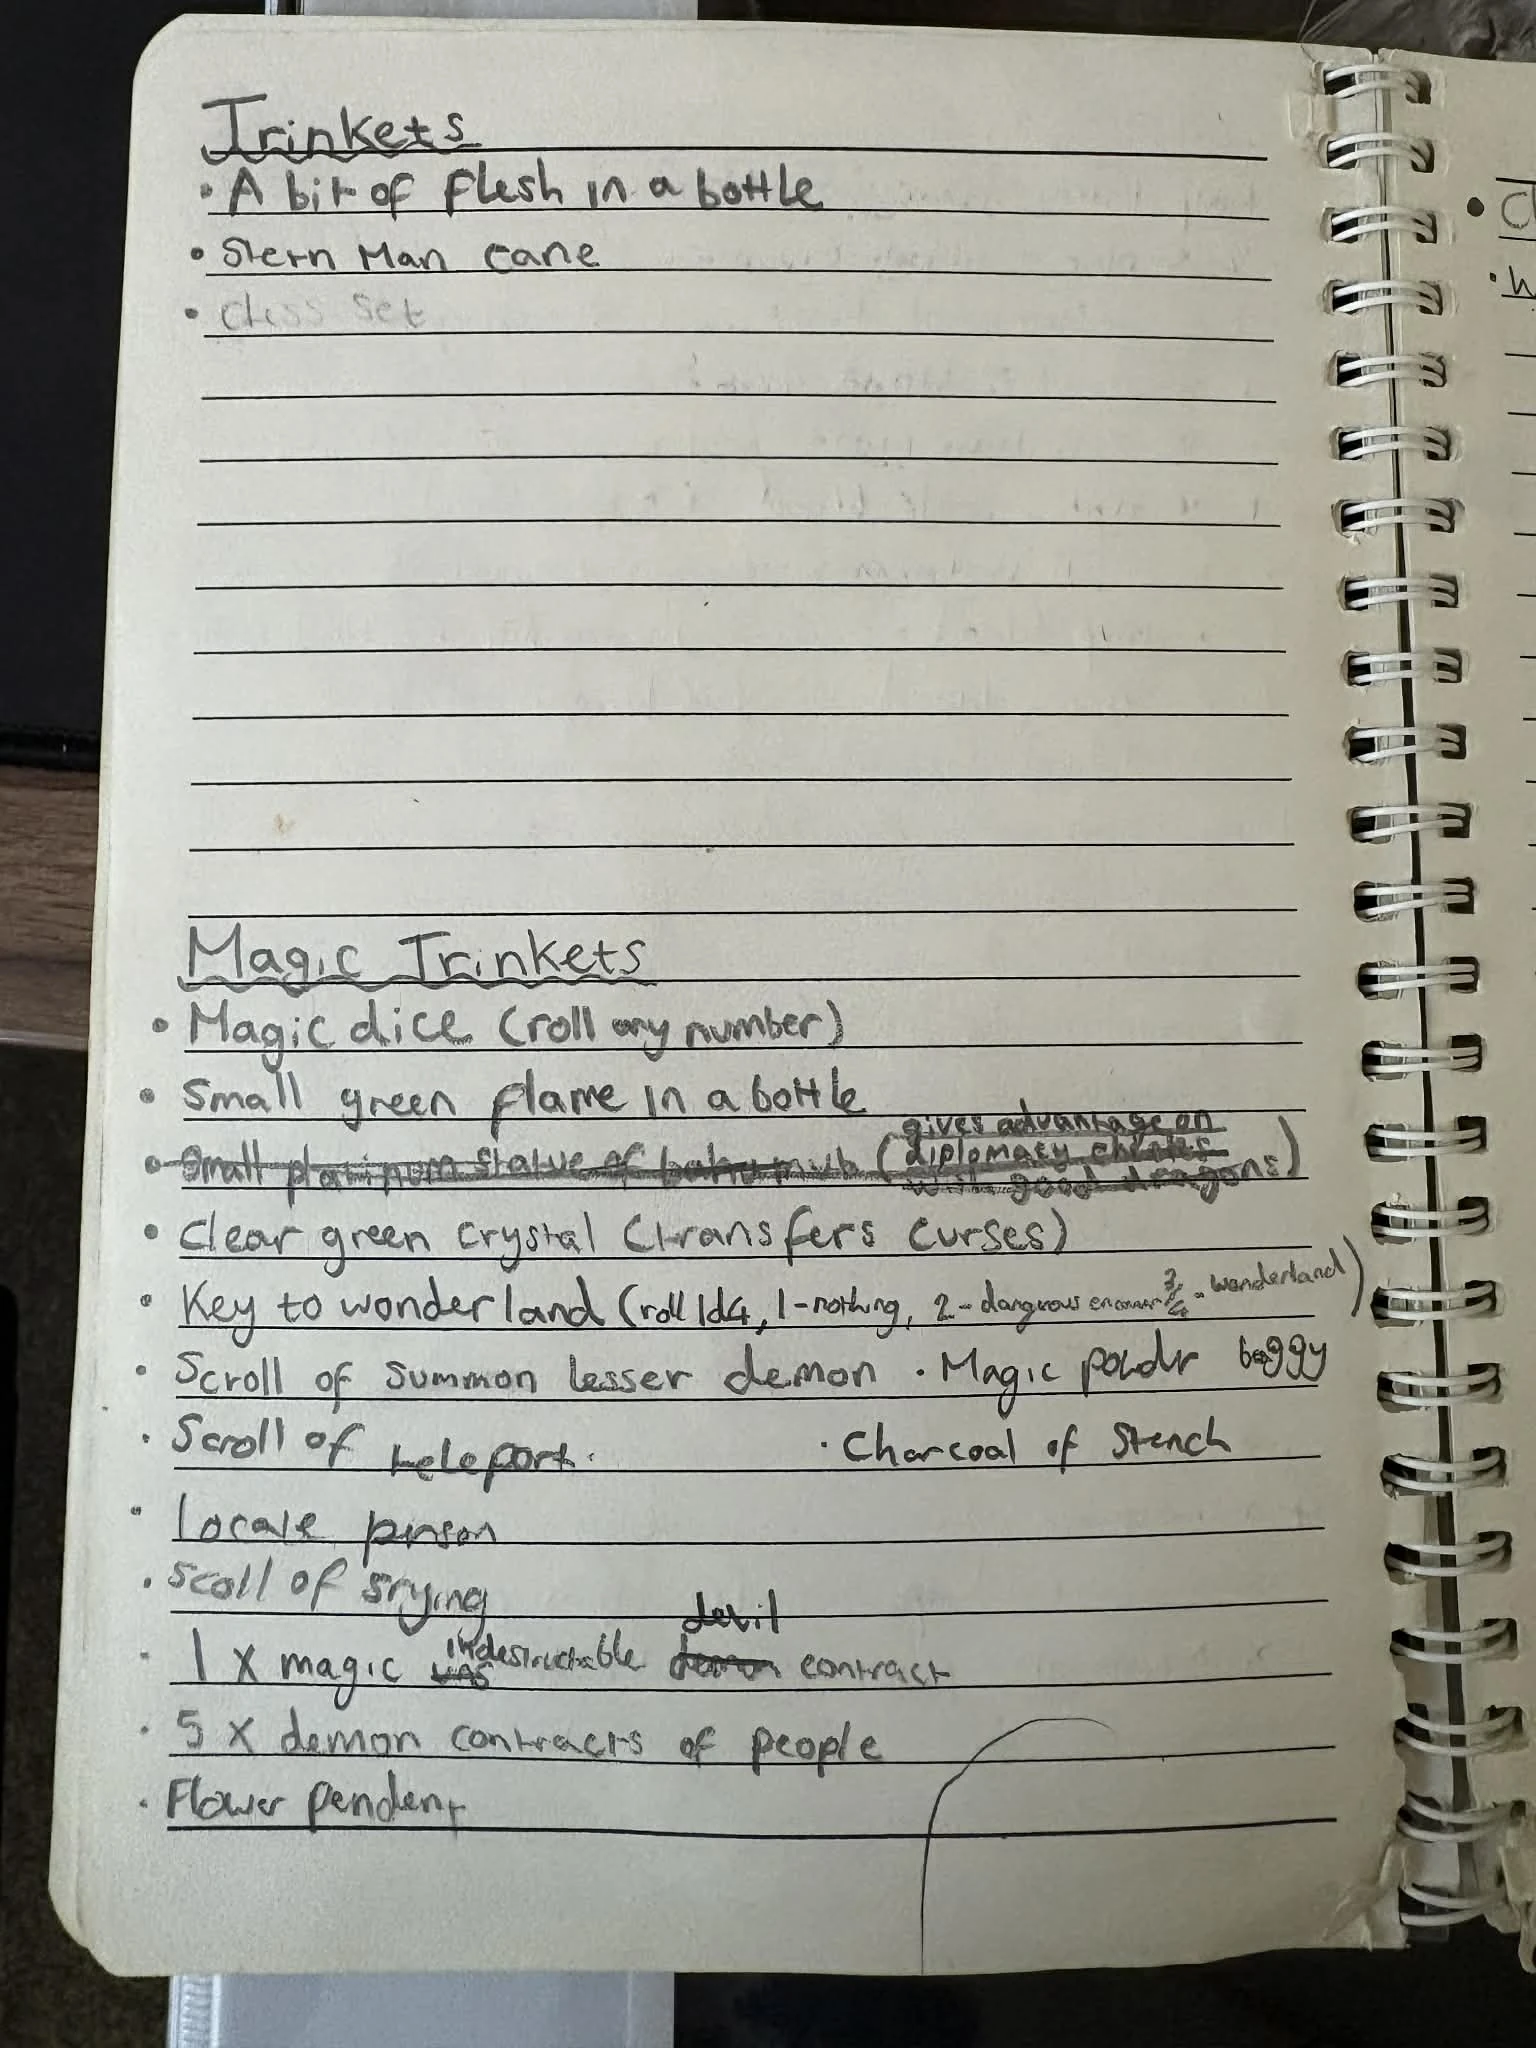 Trinkets
• A bit of flesh in a bottle
• Stern Man cane
• Chess set
Magic Trinkets
• Magic dice (roll any number)
• Small green flame in a bottle
• Small platinum statue of bahumub (gives advantage on
diplomacy checks
with good dragons)
• Clear green crystal (transfers curses)
• Key to wonderland (roll 1d4, 1-nothing, 2-dangrous 3/4 - wonderland)
• Scroll of summon lesser demon • Magic powdr baggy
• Scroll of teleport. • Charcoal of Stench
• locate person
• Scoll of srying
• 1 x magic indestructable demon devil contract
• 5 x demon contracts of people
• Flower pendent